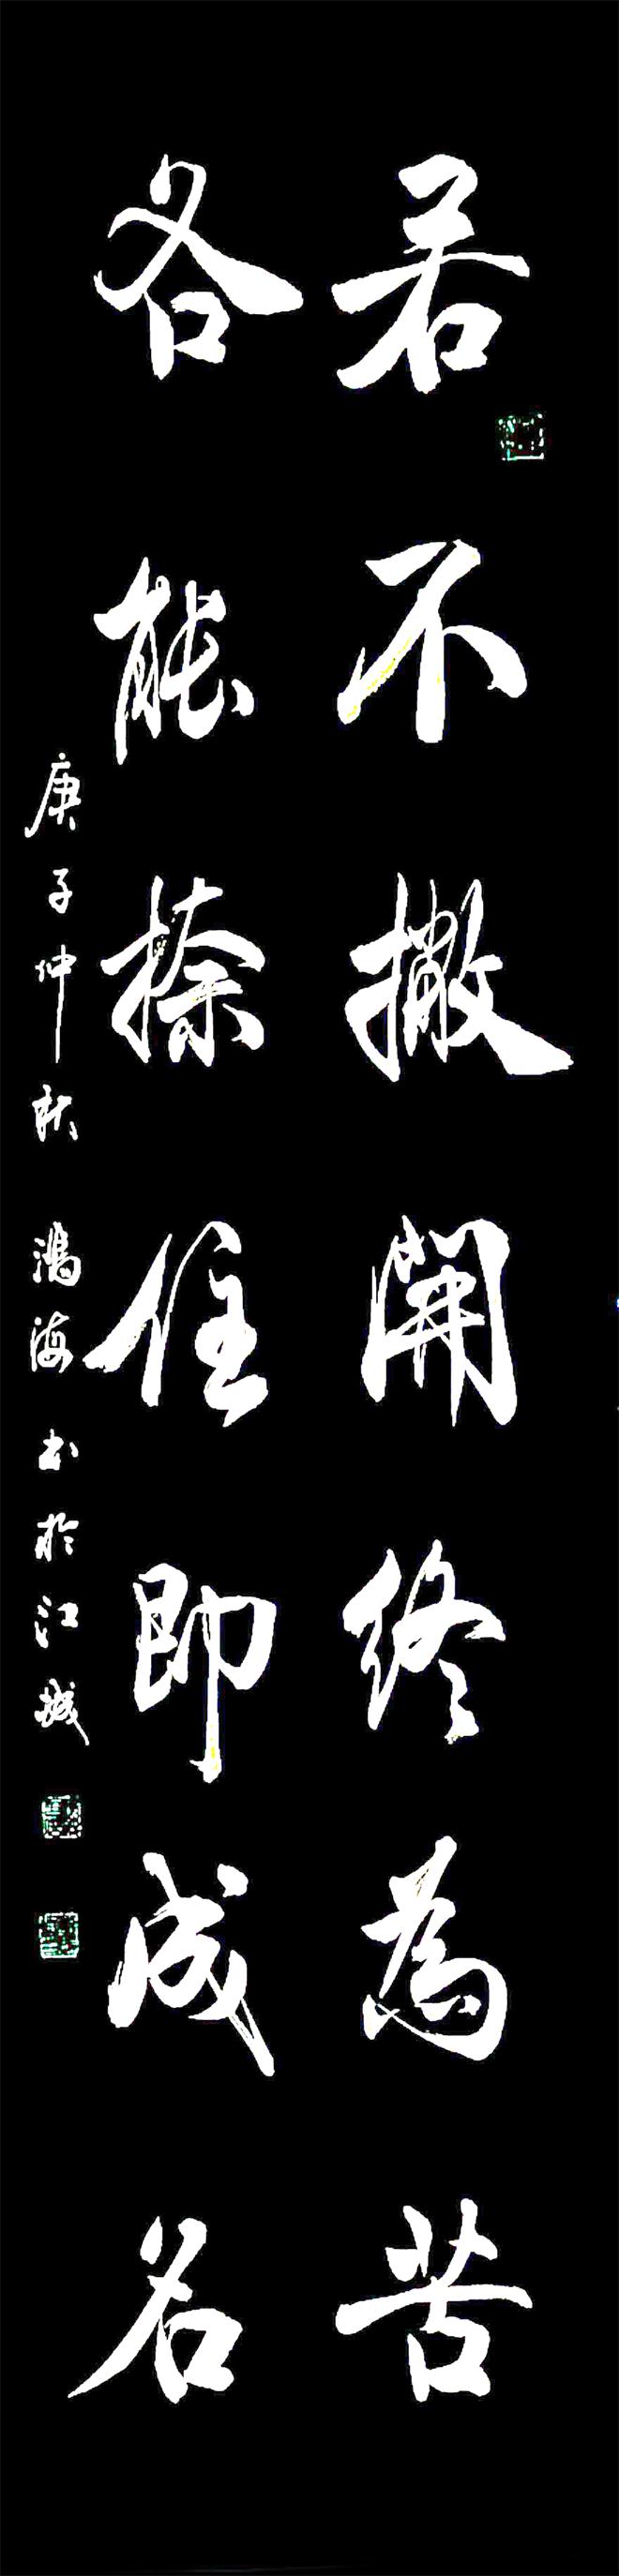 若不撇開終為苦
各能捺住即成名
庚子仲秋 鴻海书於江城